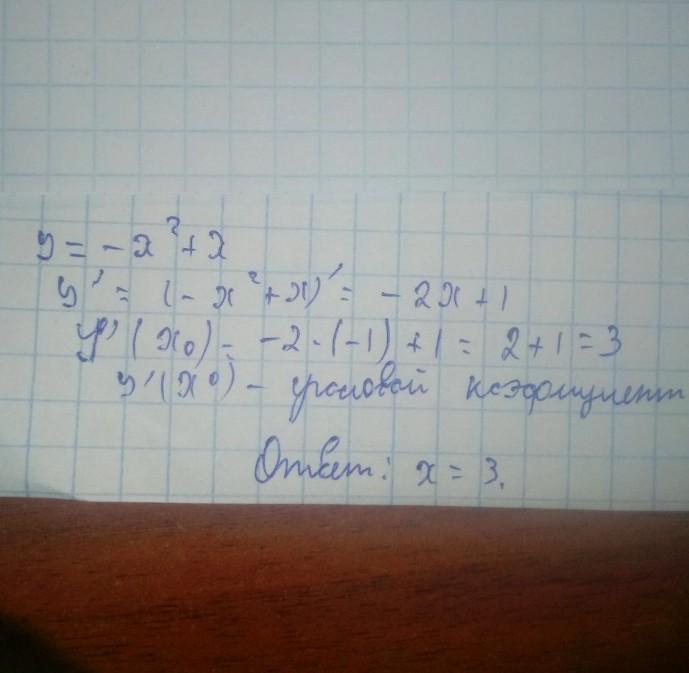 y = -x² + x
y' = (-x² + x)' = -2x + 1
y'(x₀) = -2·(-1) + 1 = 2 + 1 = 3
y'(x⁰) - угловой коэффициент
Ответ: x = 3.